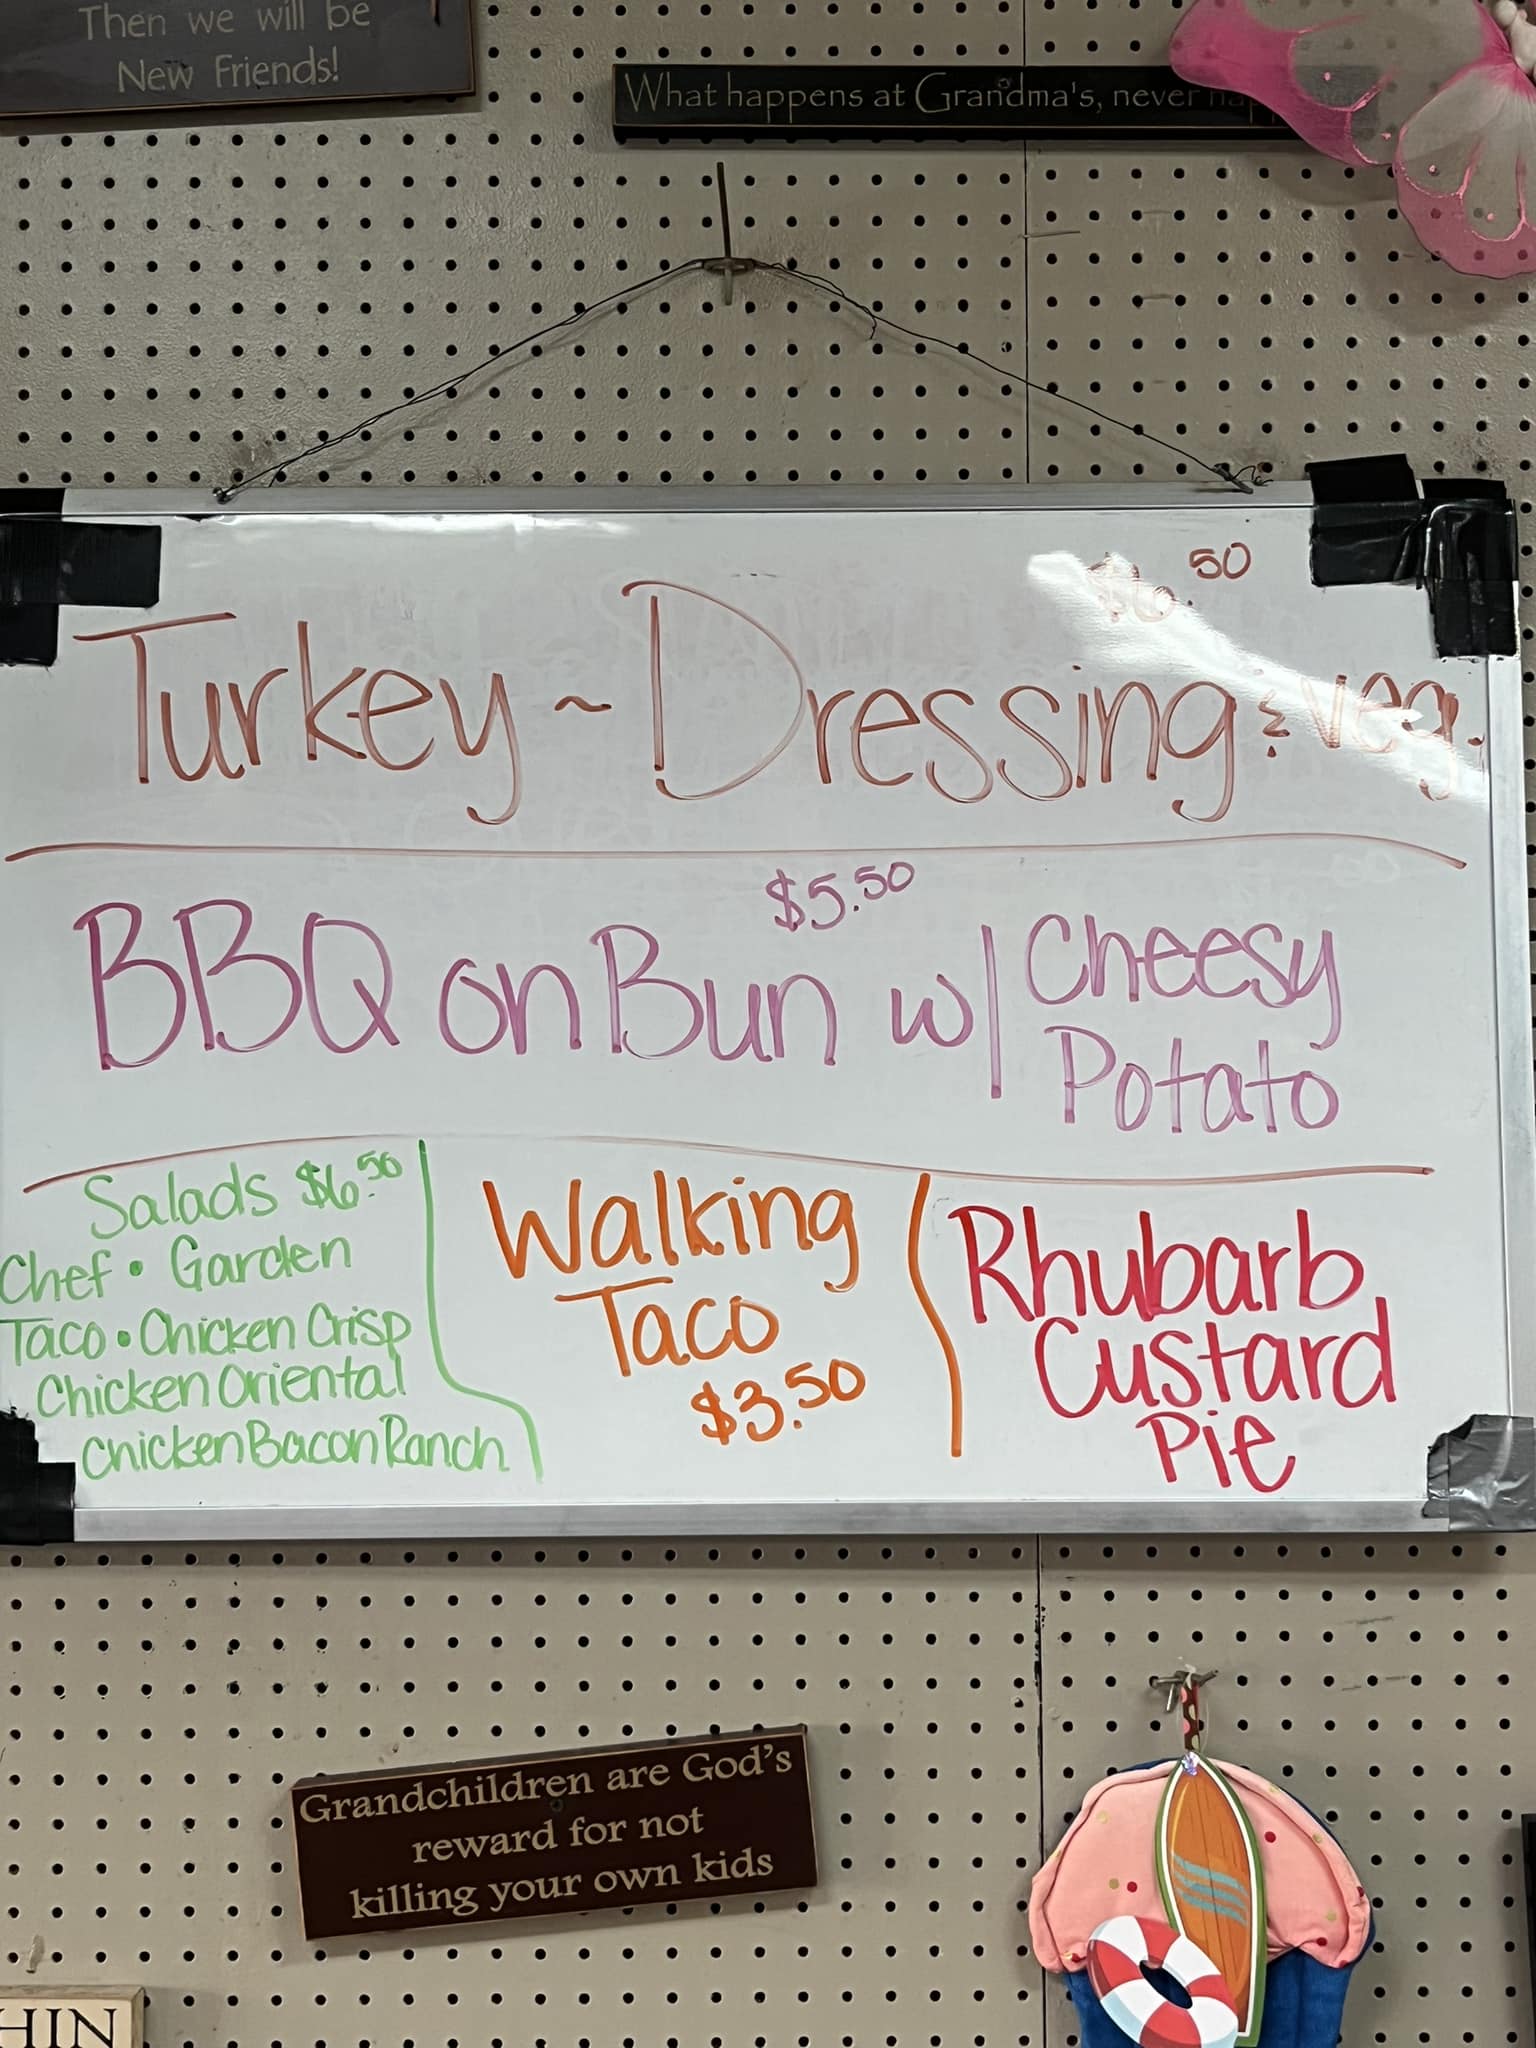 Then we will be
New Friends!
What happens at Grandma's, never
$6.50
Turkey ~ Dressing & Veg.
$5.50
BBQ on Bun w/ Cheesy
Potato
Salads $6.50
Chef • Garden
Taco • Chicken Crisp
Chicken Oriental
Chicken Bacon Ranch
Walking
Taco
$3.50
Rhubarb
Custard
Pie
Grandchildren are God's
reward for not
killing your own kids